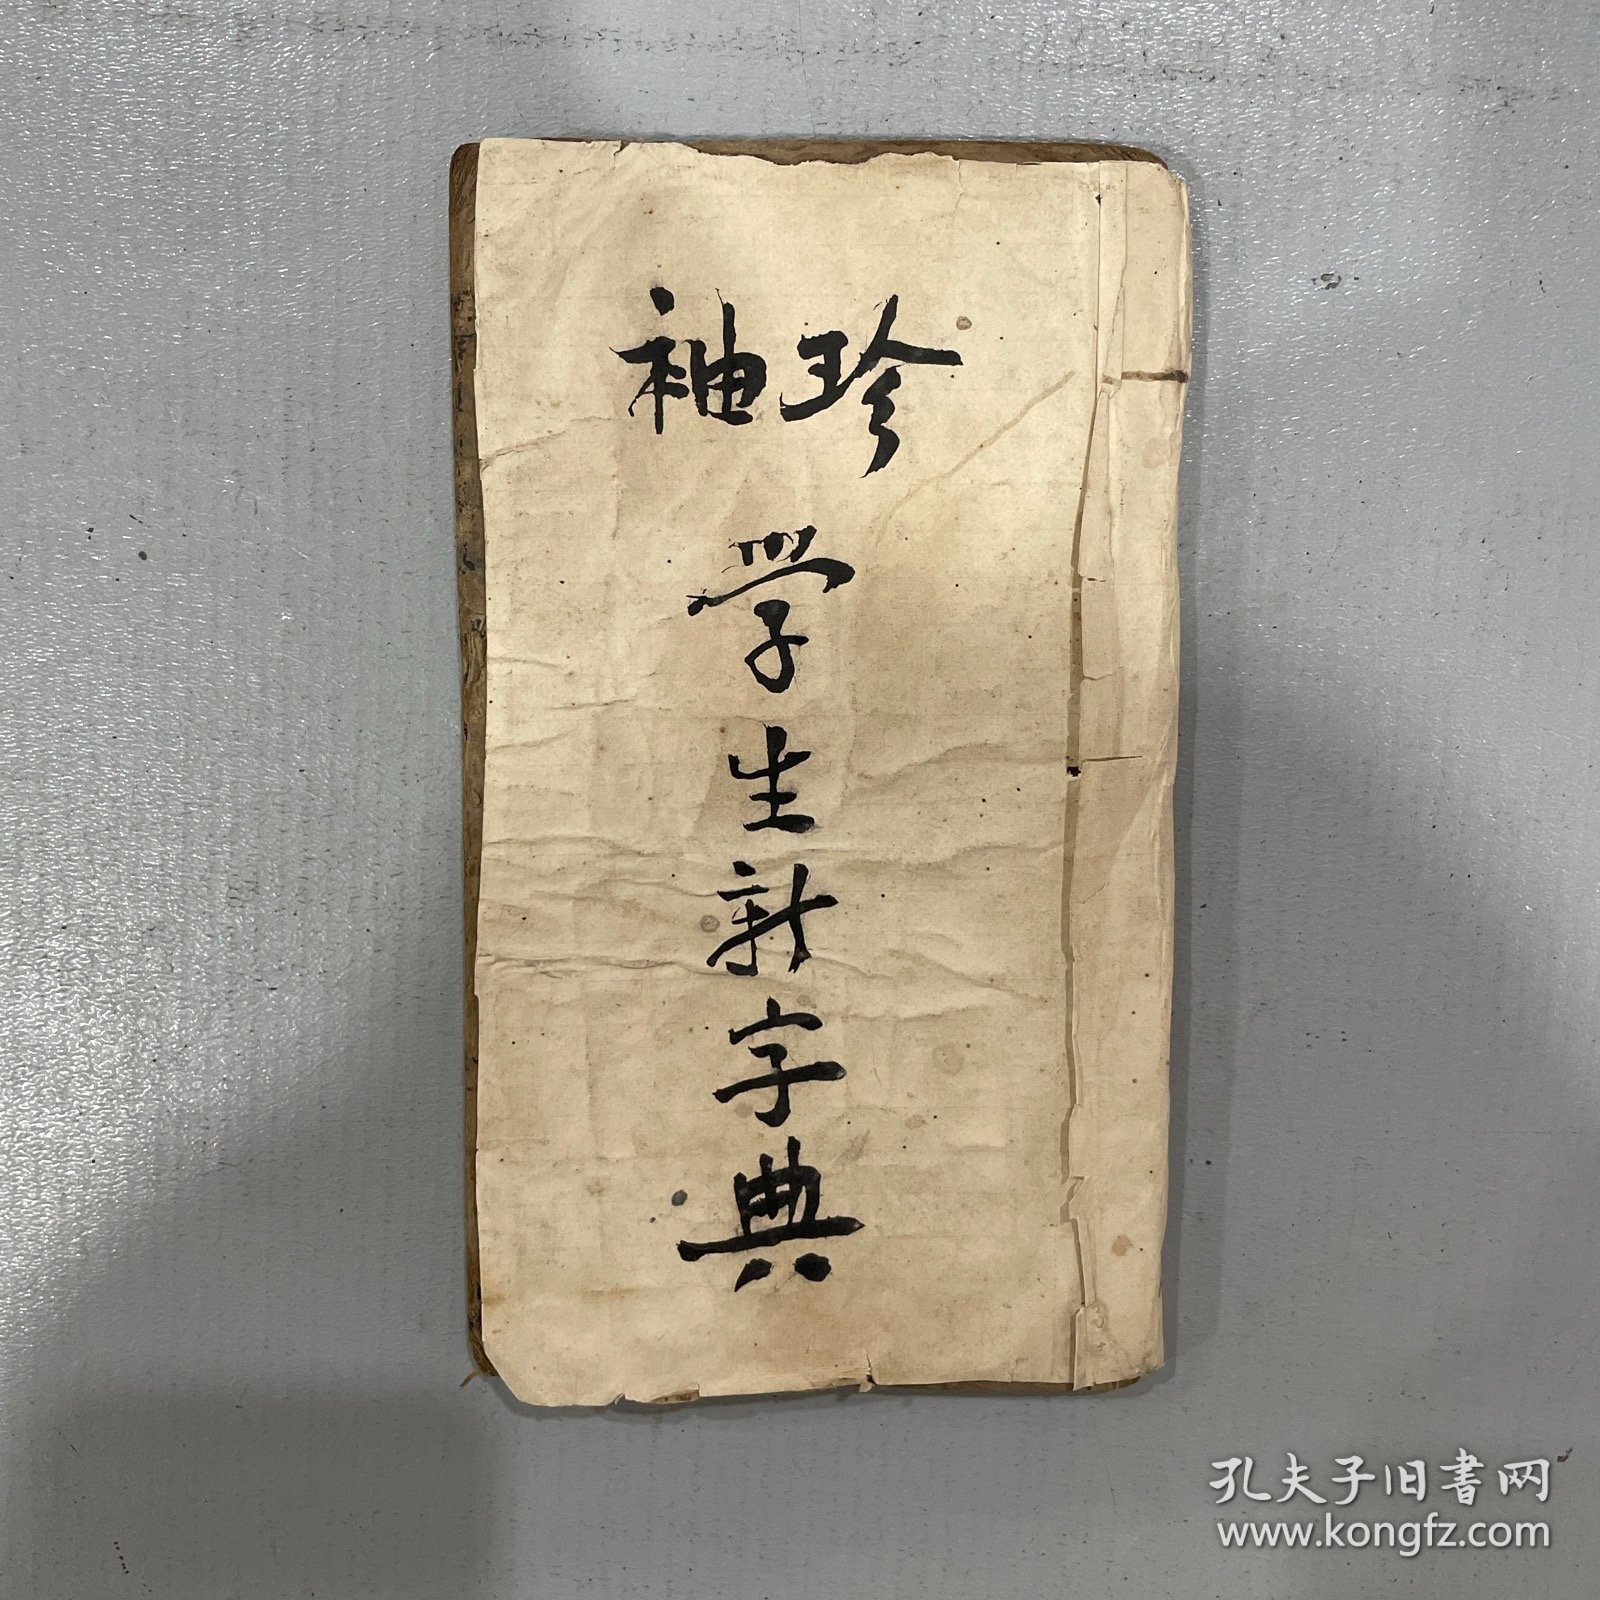 珍袖
学生新字典
孔夫子旧书网
www.kongfz.com